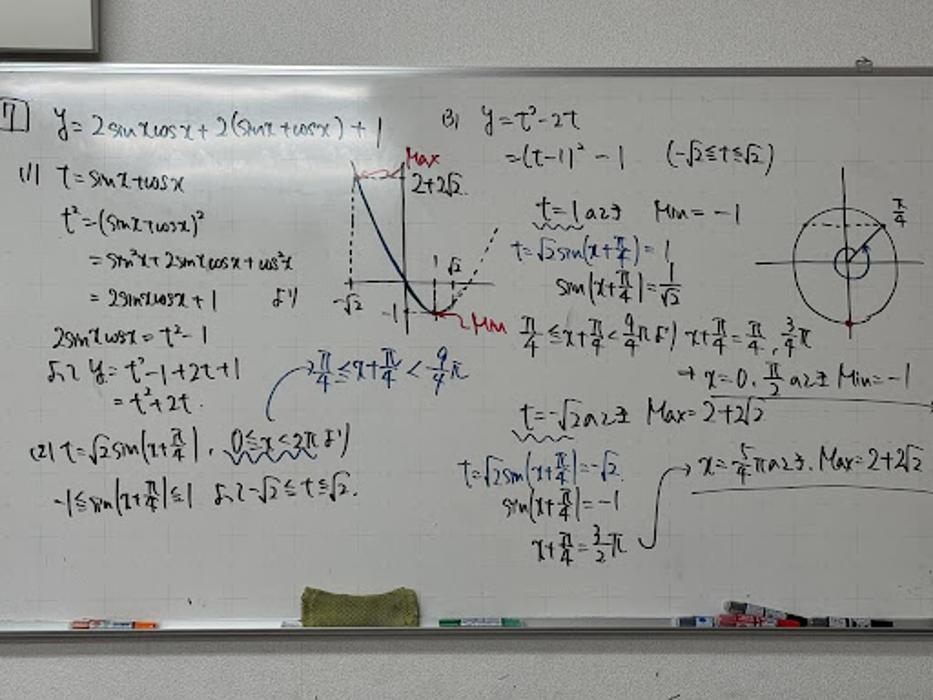 7 y = 2sinxcosx + 2(sinx+cosx) + 1
(1) t = sinx+cosx
t² = (sinx+cosx)²
= sin²x + 2sinxcosx + cos²x
= 2sinxcosx + 1 より
2sinxcosx = t² - 1
よって y = t² - 1 + 2t + 1
= t² + 2t.
(2) t = √2 sin(x+π/4), 0≦x<2πより
π/4 ≦ x+π/4 < 9/4 π
-1≦sin(x+π/4)≦1 よって -√2 ≦ t ≦ √2.
Max
2+2√2
-√2
1
√2
-1
Min
(3) y = t² - 2t
= (t-1)² - 1 (-√2≦t≦√2)
t=1のとき Min = -1
t = √2 sin(x+π/4) = 1
sin(x+π/4) = 1/√2
π/4 ≦ x+π/4 < 9/4 πより x+π/4 = π/4, 3/4 π
→ x=0, π/2 のとき Min = -1
t=-√2のとき Max = 2+2√2
t = √2 sin(x+π/4) = -√2
sin(x+π/4) = -1
x+π/4 = 3/2 π
→ x = 5/4 πのとき. Max = 2+2√2
π/4